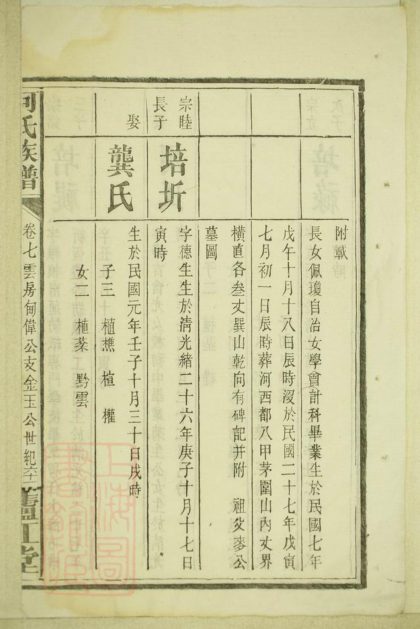 附載
長女佩瓊自治女學會計科畢業生於民國七年
戊午十月十八日辰時歿於民國二十七年戊寅
七月初一日辰時葬河西都八甲茅園山內丈界
橫直各叁丈巽山乾向有碑記并附 祖父麥公
墓圖
宗睦
長子
培圻
字德生生於清光緒二十六年庚子十月十七日
寅時
娶
龔氏
生於民國元年壬子十月三十日戌時
子三 植樵 植 權
女二 黔雲
何氏族譜
卷七雲房甸偉公支金玉公世紀六十
廬江堂